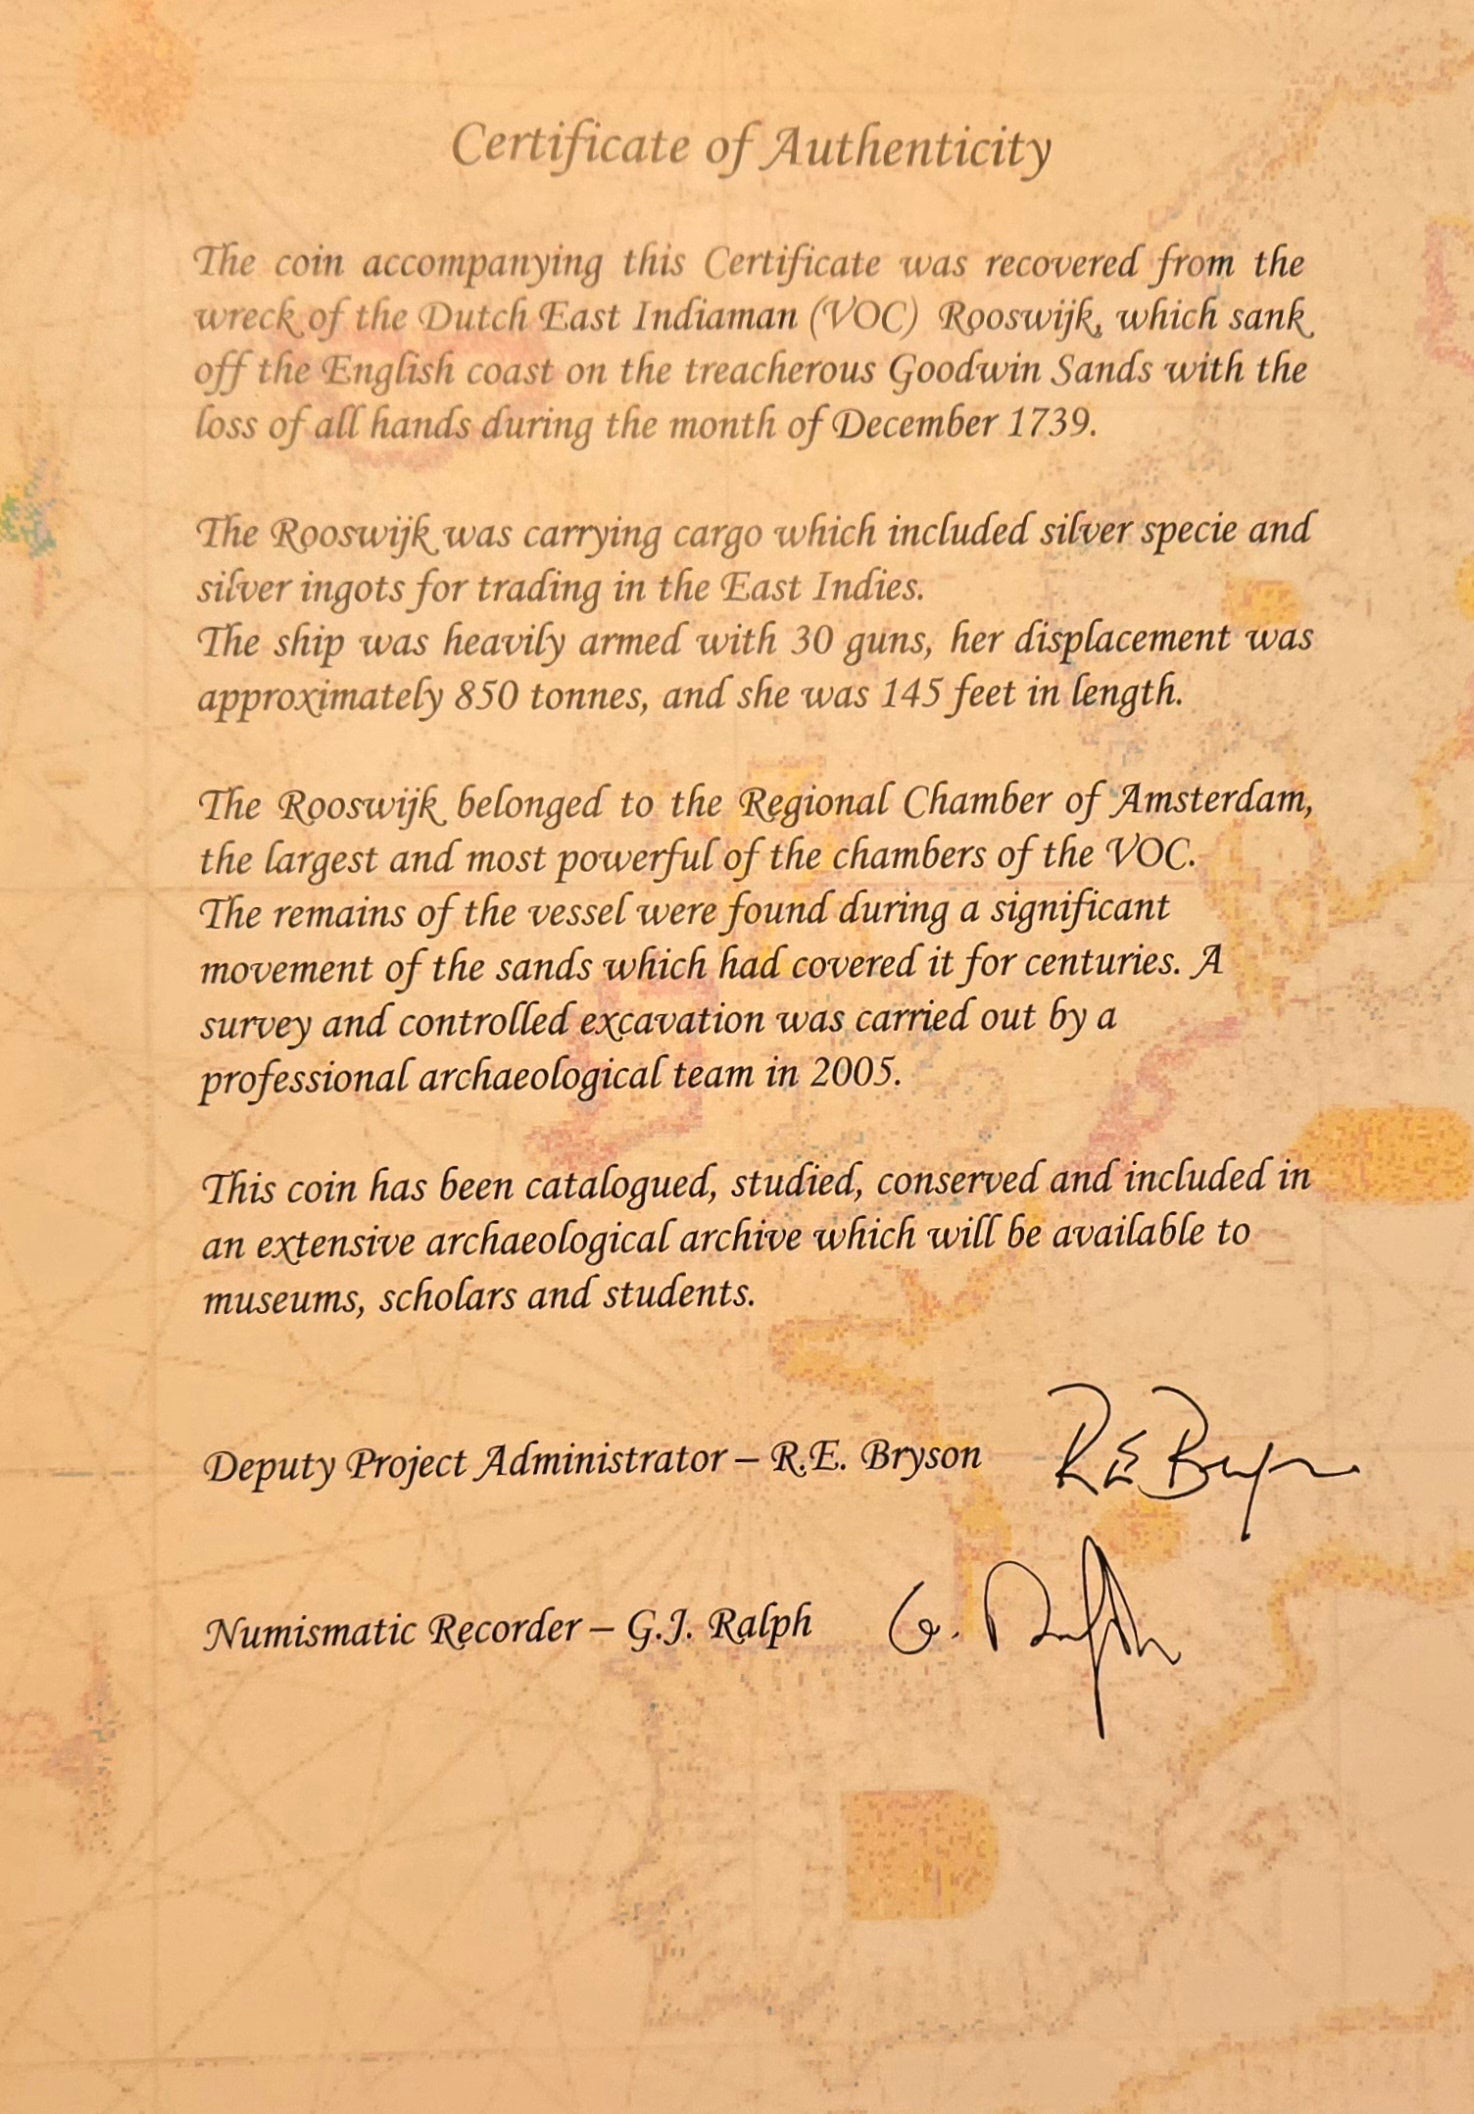 Certificate of Authenticity
The coin accompanying this Certificate was recovered from the
wreck of the Dutch East Indiaman (VOC) Rooswijk, which sank
off the English coast on the treacherous Goodwin Sands with the
loss of all hands during the month of December 1739.
The Rooswijk was carrying cargo which included silver specie and
silver ingots for trading in the East Indies.
The ship was heavily armed with 30 guns, her displacement was
approximately 850 tonnes, and she was 145 feet in length.
The Rooswijk belonged to the Regional Chamber of Amsterdam,
the largest and most powerful of the chambers of the VOC.
The remains of the vessel were found during a significant
movement of the sands which had covered it for centuries. A
survey and controlled excavation was carried out by a
professional archaeological team in 2005.
This coin has been catalogued, studied, conserved and included in
an extensive archaeological archive which will be available to
museums, scholars and students.
Deputy Project Administrator – R.E. Bryson R E Bryson
Numismatic Recorder – G.J. Ralph G. Ralph